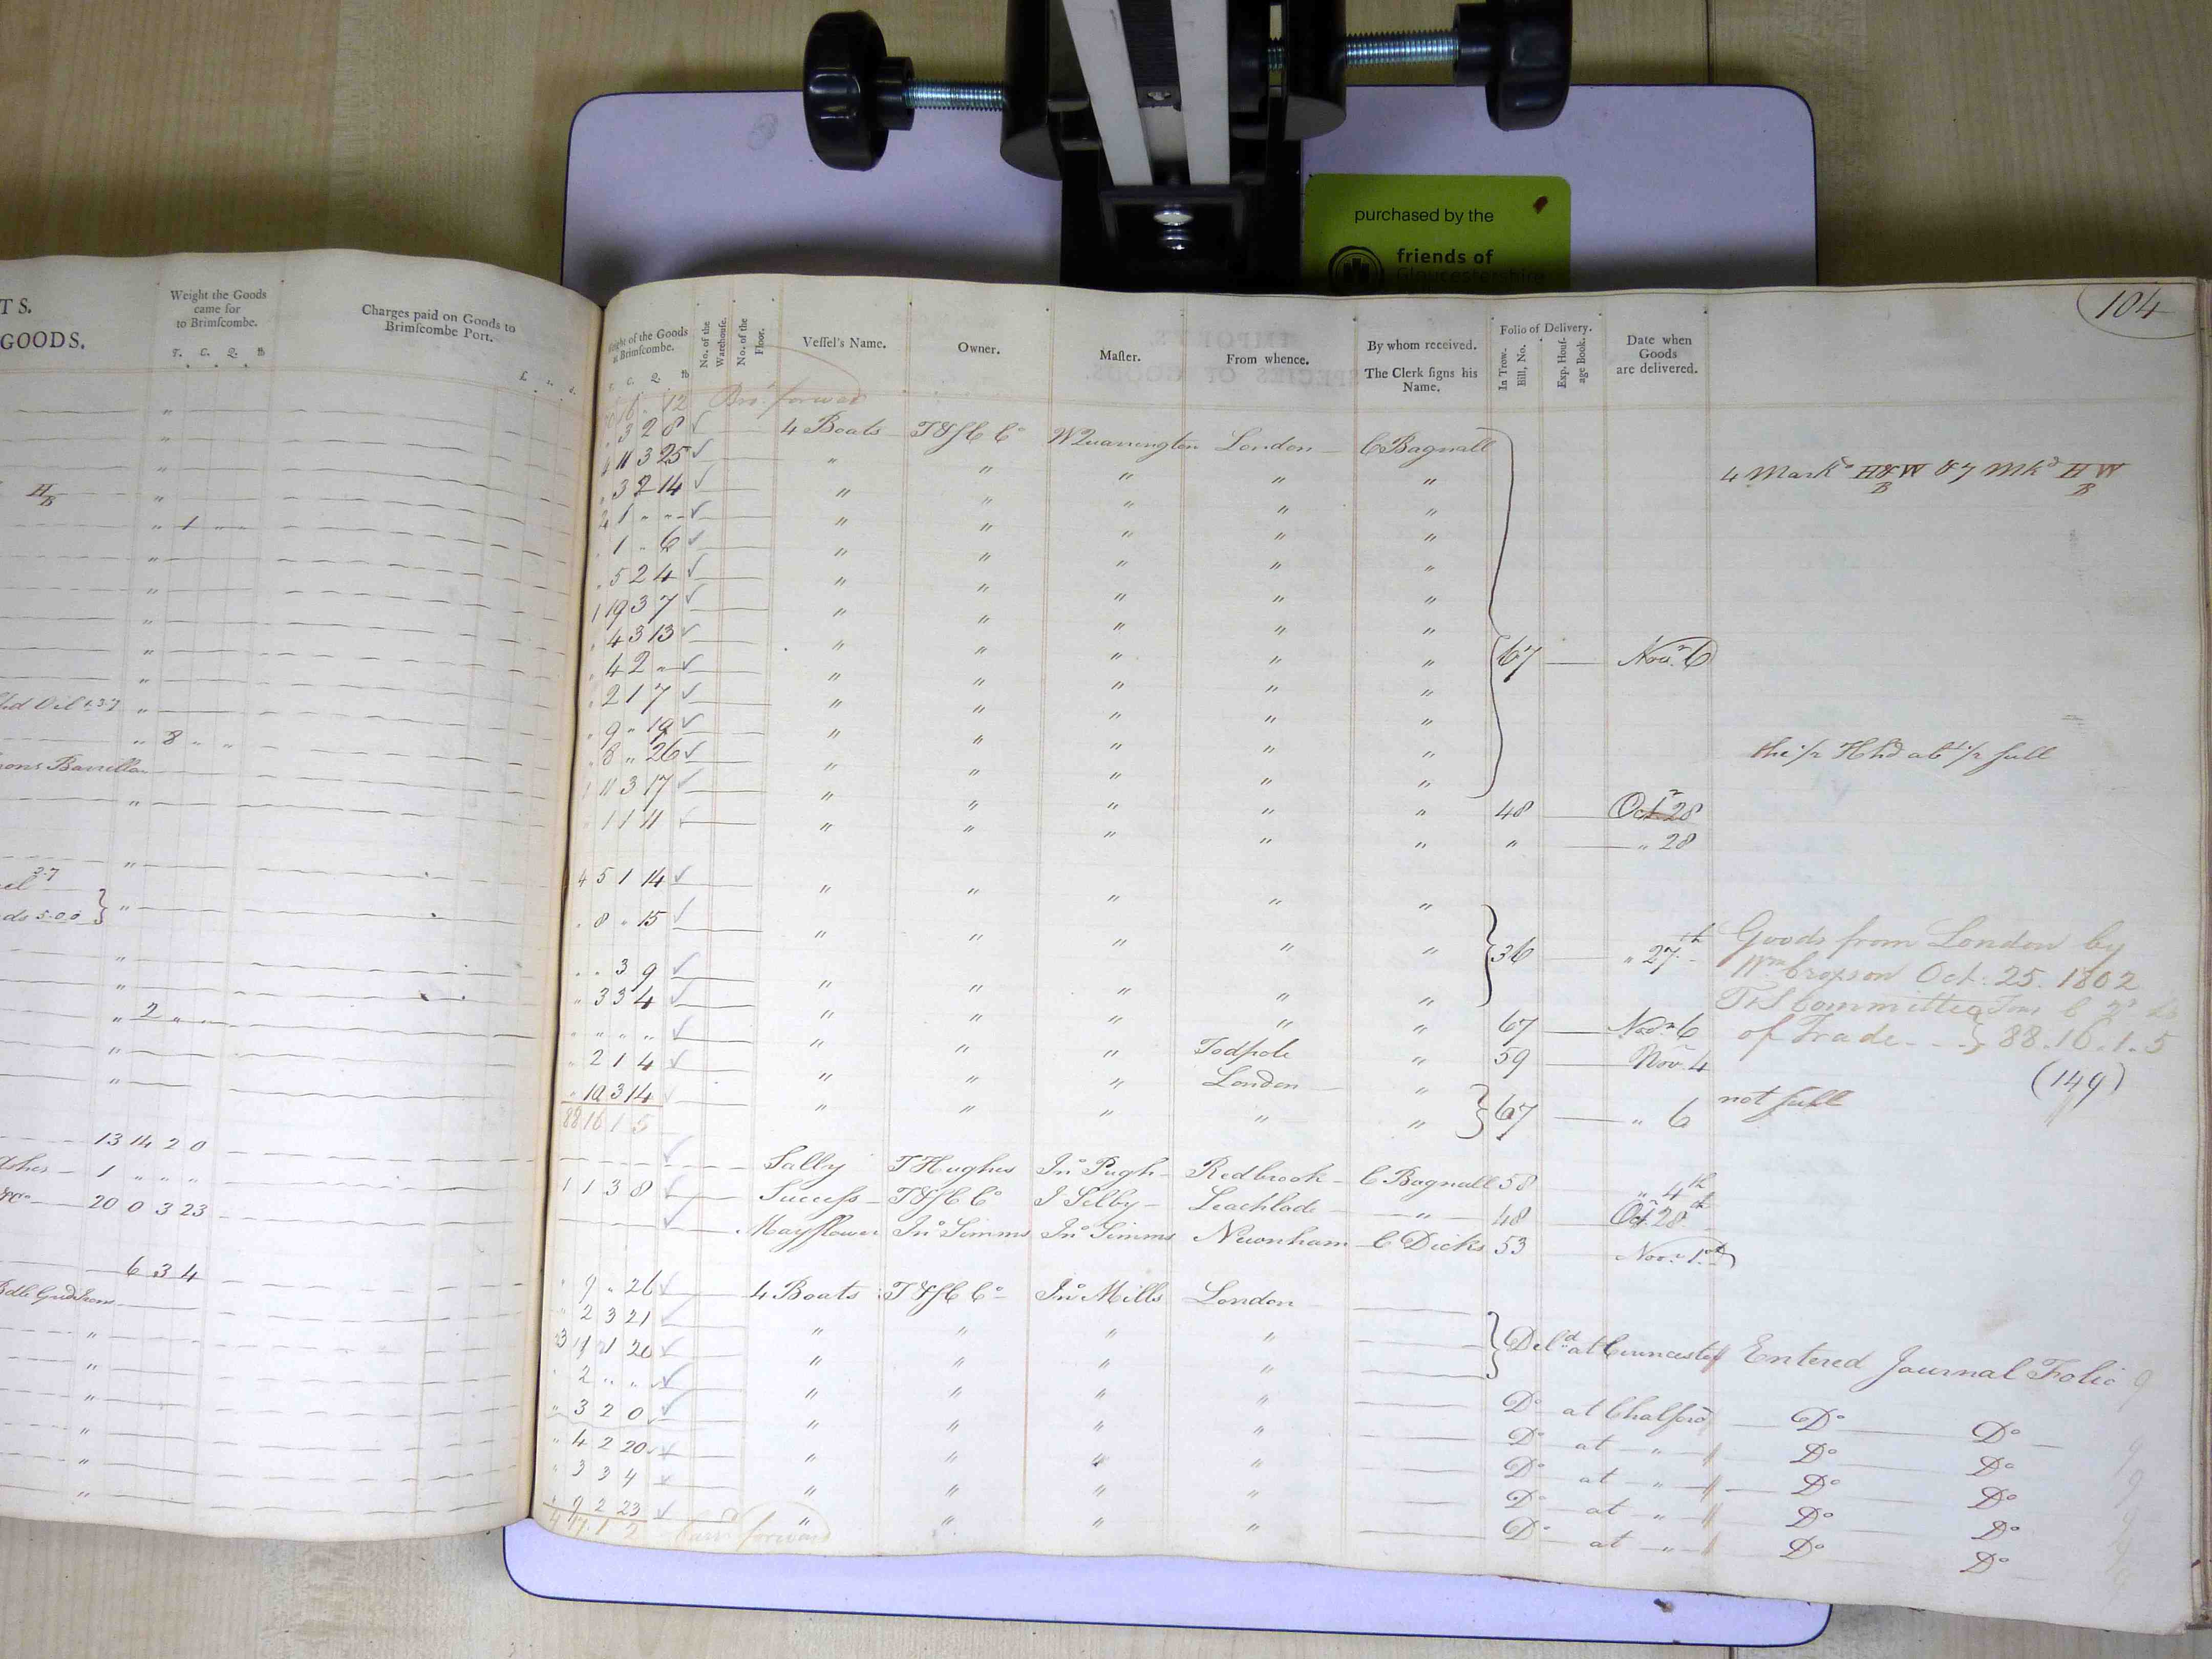 purchased by the
friends of
Gloucestershire
104
TS.
GOODS.
Weight the Goods
came for
to Brimſcombe.
T. C. Q. ℔
Charges paid on Goods to
Brimſcombe Port.
H/B
" 1 " "
" 8 " "
" 2 " "
13 14 2 0
1 " " "
20 0 3 23
6 3 4
Weight of the Goods
at Brimſcombe.
No. of the Warehouſe.
No. of the Floor.
Veſſel's Name.
Owner.
Maſter.
From whence.
By whom received.
The Clerk ſigns his
Name.
Folio of Delivery.
In Trow. Bill, No.
Exp. Houſ-age Book.
Date when
Goods
are delivered.
Bro.t forward
. 3 2 8 4 Boats T&SC Co W Quarrington London C Bagnall
4 11 3 25 " " " " "
. 3 2 14 " " " " " 4 Markd H&W/B & 7 Mkd HW/B
2 1 " " " " " " "
. 1 " 6 " " " " "
. 5 2 4 " " " " "
1 19 3 7 " " " " "
. 4 3 13 " " " " "
. 4 2 " " " " " " 67 Novr. 6
. 2 1 7 " " " " "
. 9 " 19 " " " " "
. 8 " 26 " " " " " the 1/2 Hhd abt 1/2 full
1 11 3 17 " " " " "
. 1 1 11 " " " " " 48 Octr 28
" " 28
4 5 1 14 " " " " "
. 8 " 15 " " " " " 36 " 27th
. . 3 9 " " " " "
" 3 3 4 " " " " "
Goods from London by
Wm Croxson Oct. 25. 1802
T&S Committee Tons C Qs lb
of Trade - - - } 88.16.1.5
(149)
" " " " " " " Todpole " 67 Novr 6
" 2 1 4 " " " London " 59 Novr. 4
" 10 3 14 " " " " " 67 " 6 not full
88 16 1 5
Sally T Hughes Jno Pugh Redbrook C Bagnall 58 " 4th
1 1 3 8 Success T&SC Co J Selby Leachlade " 48 Oct 28th
Mayflower Jno Simms Jno Simms Newnham C Dicks 53 Novr. 1st
. 9 " 26 4 Boats T&SC Co Jno Mills London
" 2 3 21 " " " "
3 11 1 20 " " " " Deld at Cirencester Entered Journal Folio 9
. 2 " " " " " "
" 3 2 0 " " " " Do at Chalford Do Do 9
" 4 2 20 " " " " Do at " Do Do 9
" 3 3 4 " " " " Do at " Do Do 9
" 9 2 23 " " " " Do at " Do Do 9
Do at " Do Do 9
4 17 1 2 Carrd forward